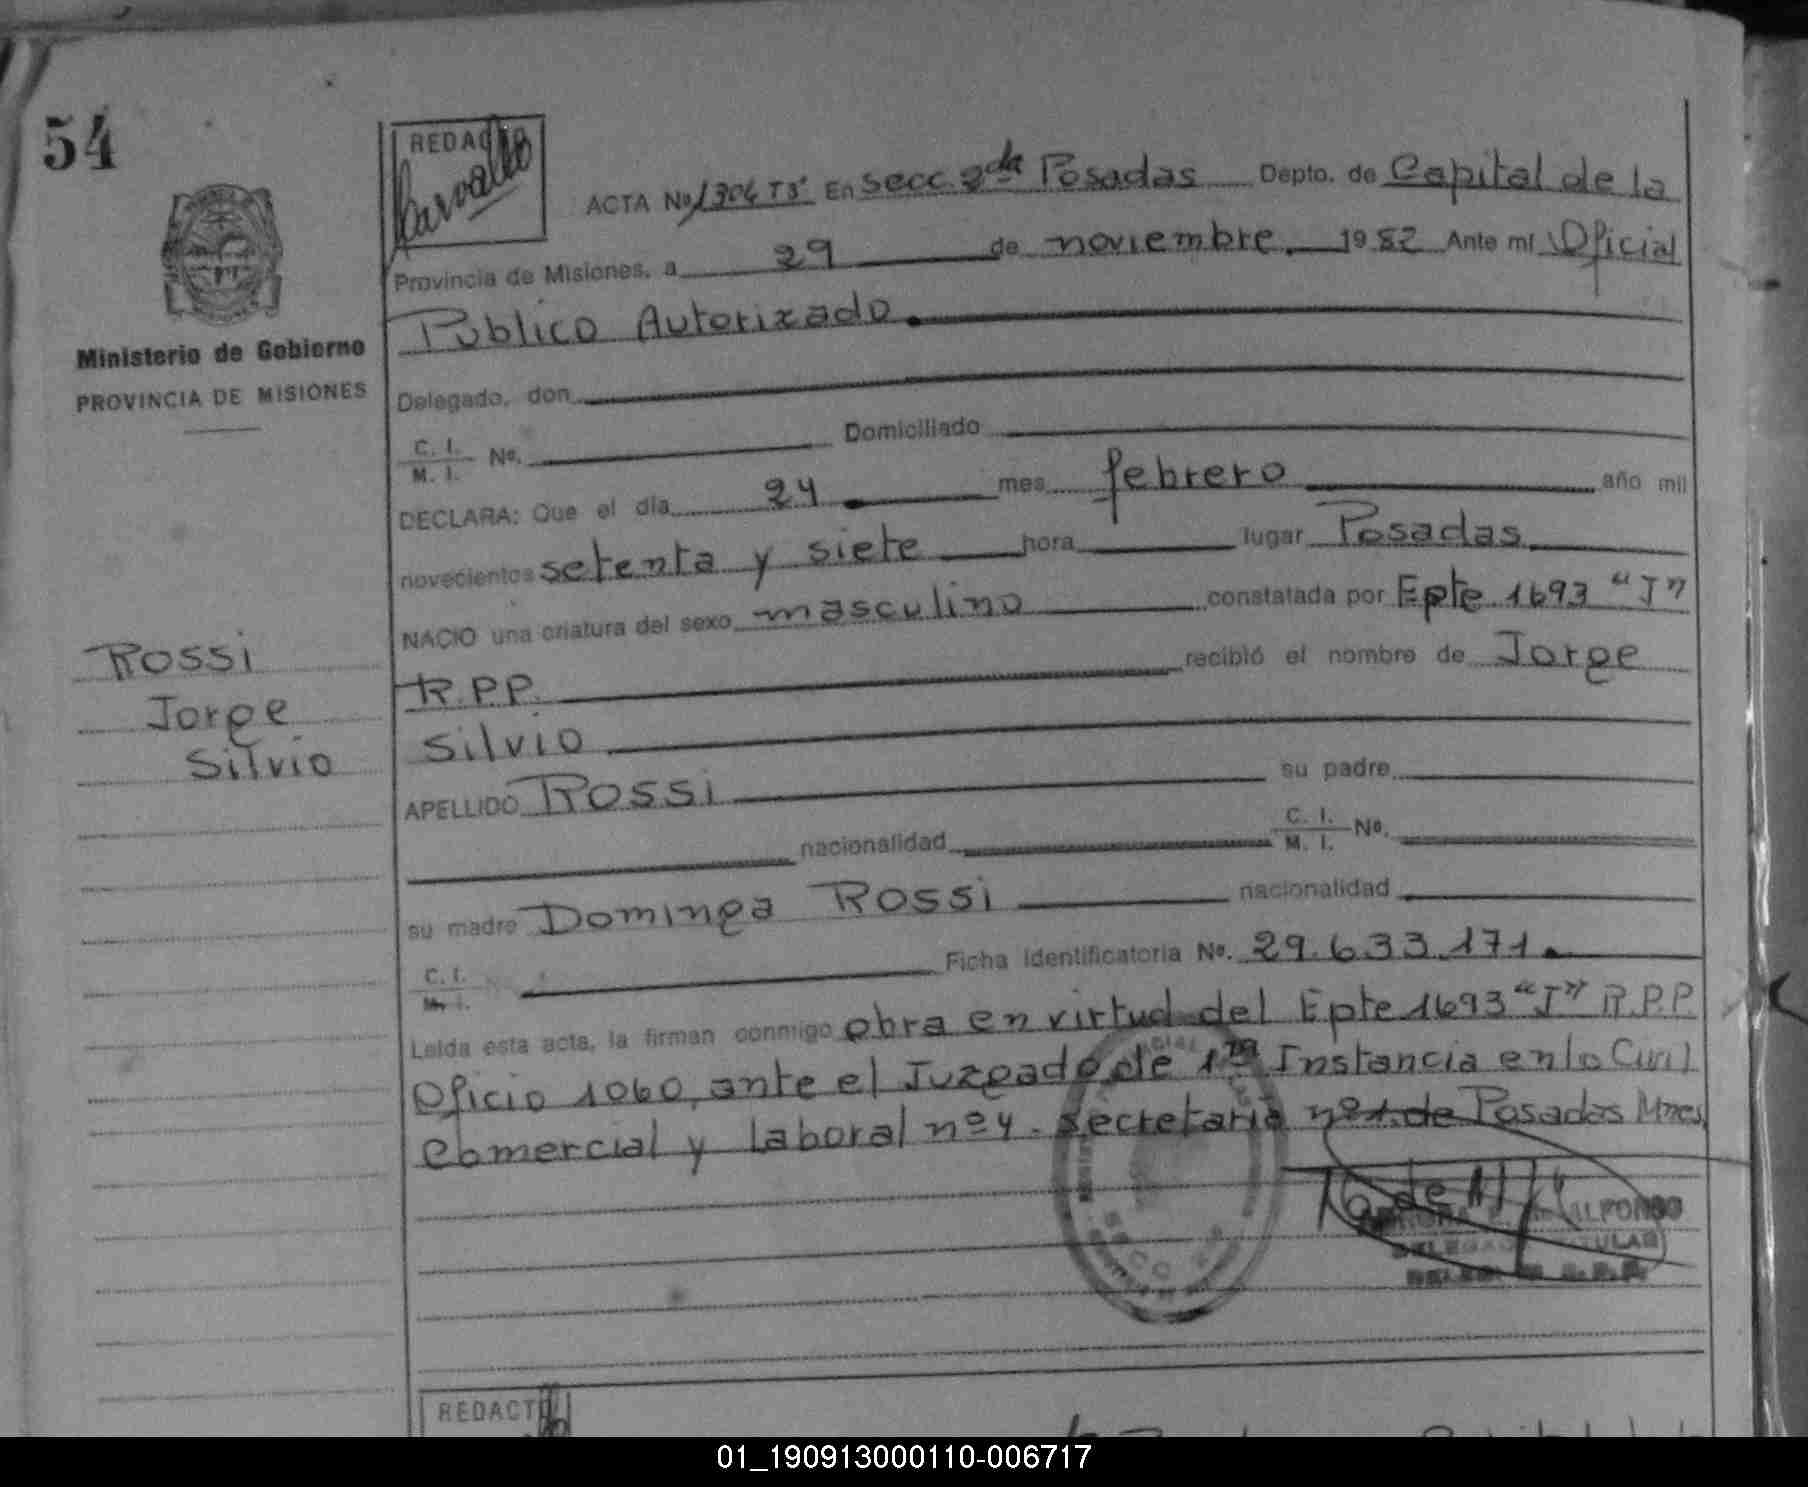 54
REDACTO
Carvallo
ACTA No 1304 T3º En Secc. 2da Posadas Depto. de Capital de la
Provincia de Misiones, a 29 de noviembre. 1982 Ante mí Oficial
Publico Autorizado.
Ministerio de Gobierno
PROVINCIA DE MISIONES
Delegado, don
C. I.
M. I. No. Domiciliado
DECLARA: Que el día 24 mes febrero año mil
novecientos setenta y siete hora lugar Posadas
NACIO una criatura del sexo masculino constatada por Epte 1693 "J"
R.P.P. recibió el nombre de Jorge
Silvio
Rossi
Jorge
Silvio
APELLIDO Rossi su padre
nacionalidad C. I.
M. I. No.
su madre Dominga Rossi nacionalidad
C. I.
M. I. Ficha Identificatoria No. 29.633.171.
Leída esta acta, la firman conmigo obra en virtud del Epte 1693 "J" R.P.P.
Oficio 1060, ante el Juzgado de 1ra Instancia en lo Civil
Comercial y laboral nº 4. secretaria nº 1. de Posadas Mnes
SECC 2ª
ALFONSO
DELEGADA TITULAR
REDACTO
01_190913000110-006717